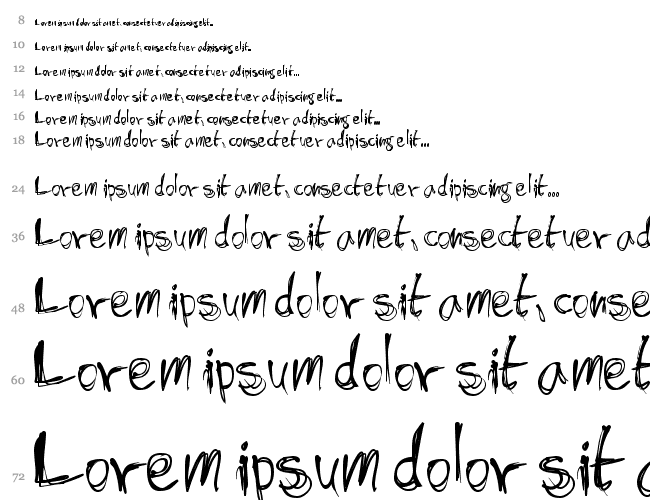 8 Lorem ipsum dolor sit amet, consectetuer adipiscing elit...
10 Lorem ipsum dolor sit amet, consectetuer adipiscing elit...
12 Lorem ipsum dolor sit amet, consectetuer adipiscing elit...
14 Lorem ipsum dolor sit amet, consectetuer adipiscing elit...
16 Lorem ipsum dolor sit amet, consectetuer adipiscing elit...
18 Lorem ipsum dolor sit amet, consectetuer adipiscing elit...
24 Lorem ipsum dolor sit amet, consectetuer adipiscing elit...
36 Lorem ipsum dolor sit amet, consectetuer ad
48 Lorem ipsum dolor sit amet, conse
60 Lorem ipsum dolor sit amet
72 Lorem ipsum dolor sit a